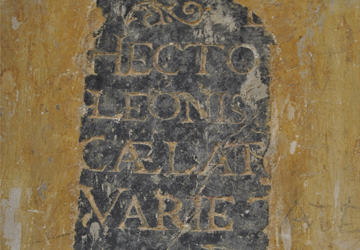 HECTO
LEONIS
CÆLAT
VARIE